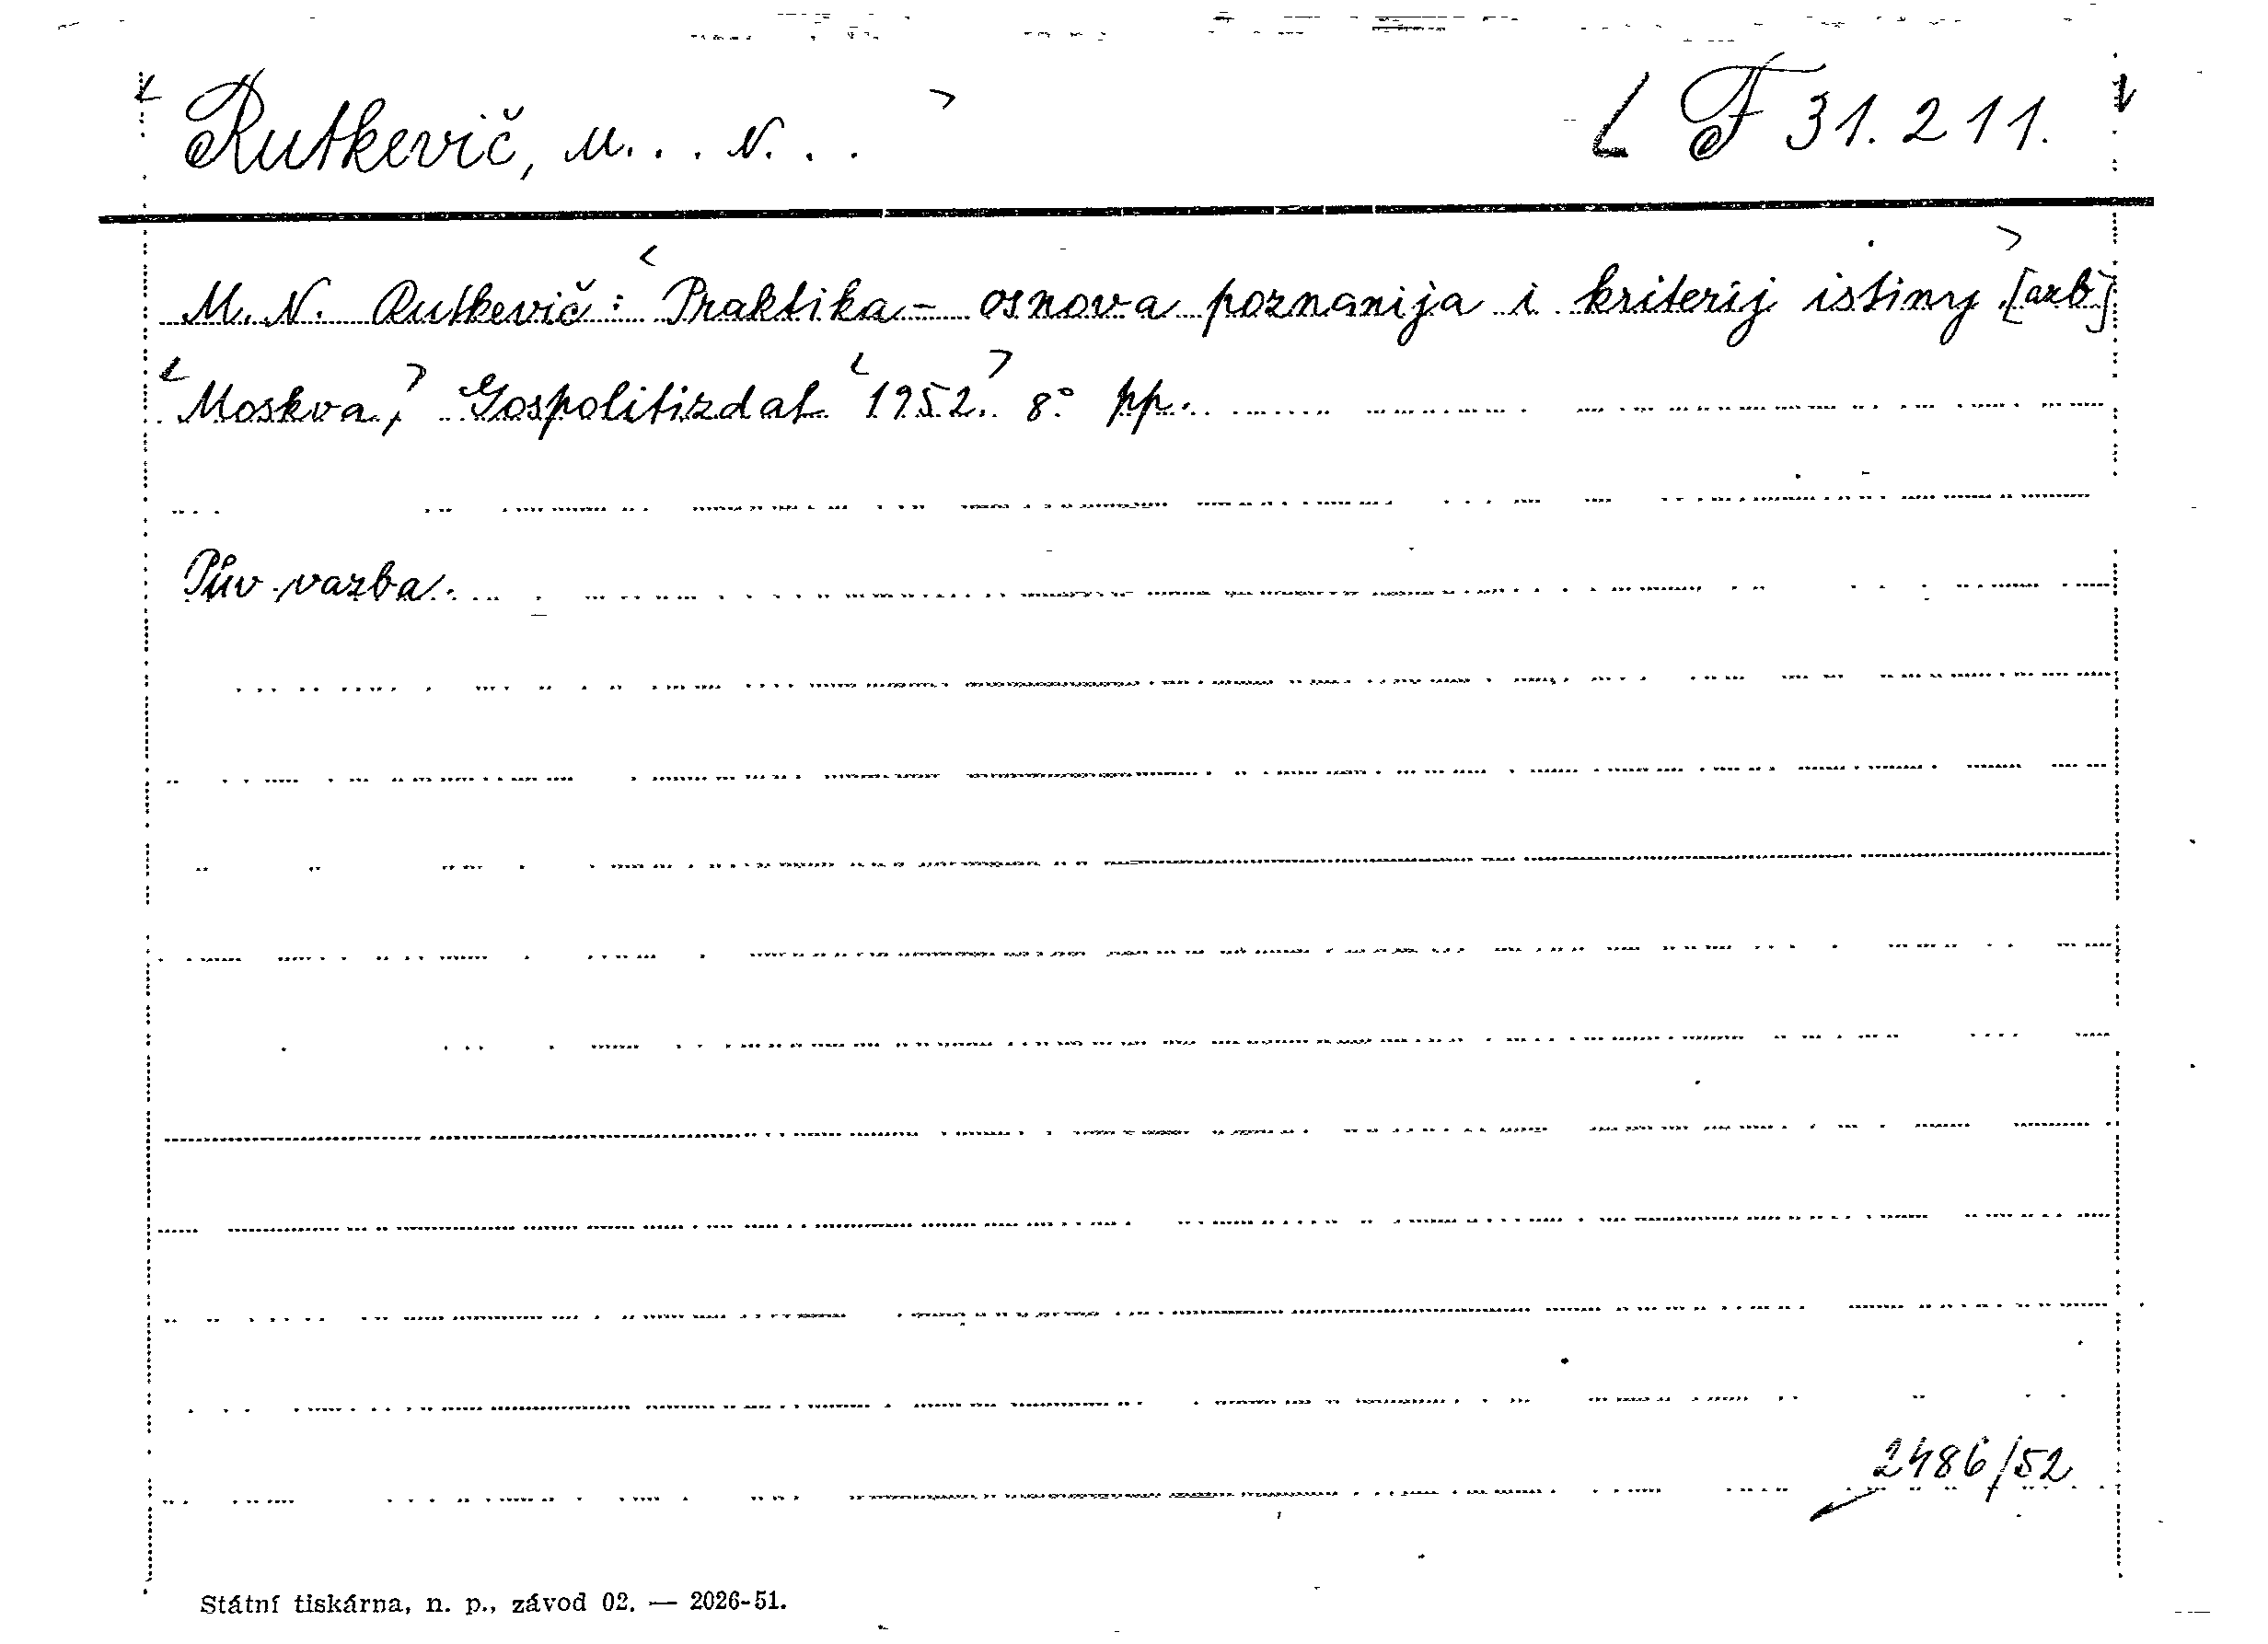 Rutkevič, M... N... F 31.211.
M. N. Rutkevič: Praktika - osnova poznanija i kriterij istiny. [azb]
Moskva, Gospolitizdat 1952. 8° pp.
Pův. vazba.
2486/52
Státní tiskárna, n. p., závod 02. — 2026-51.